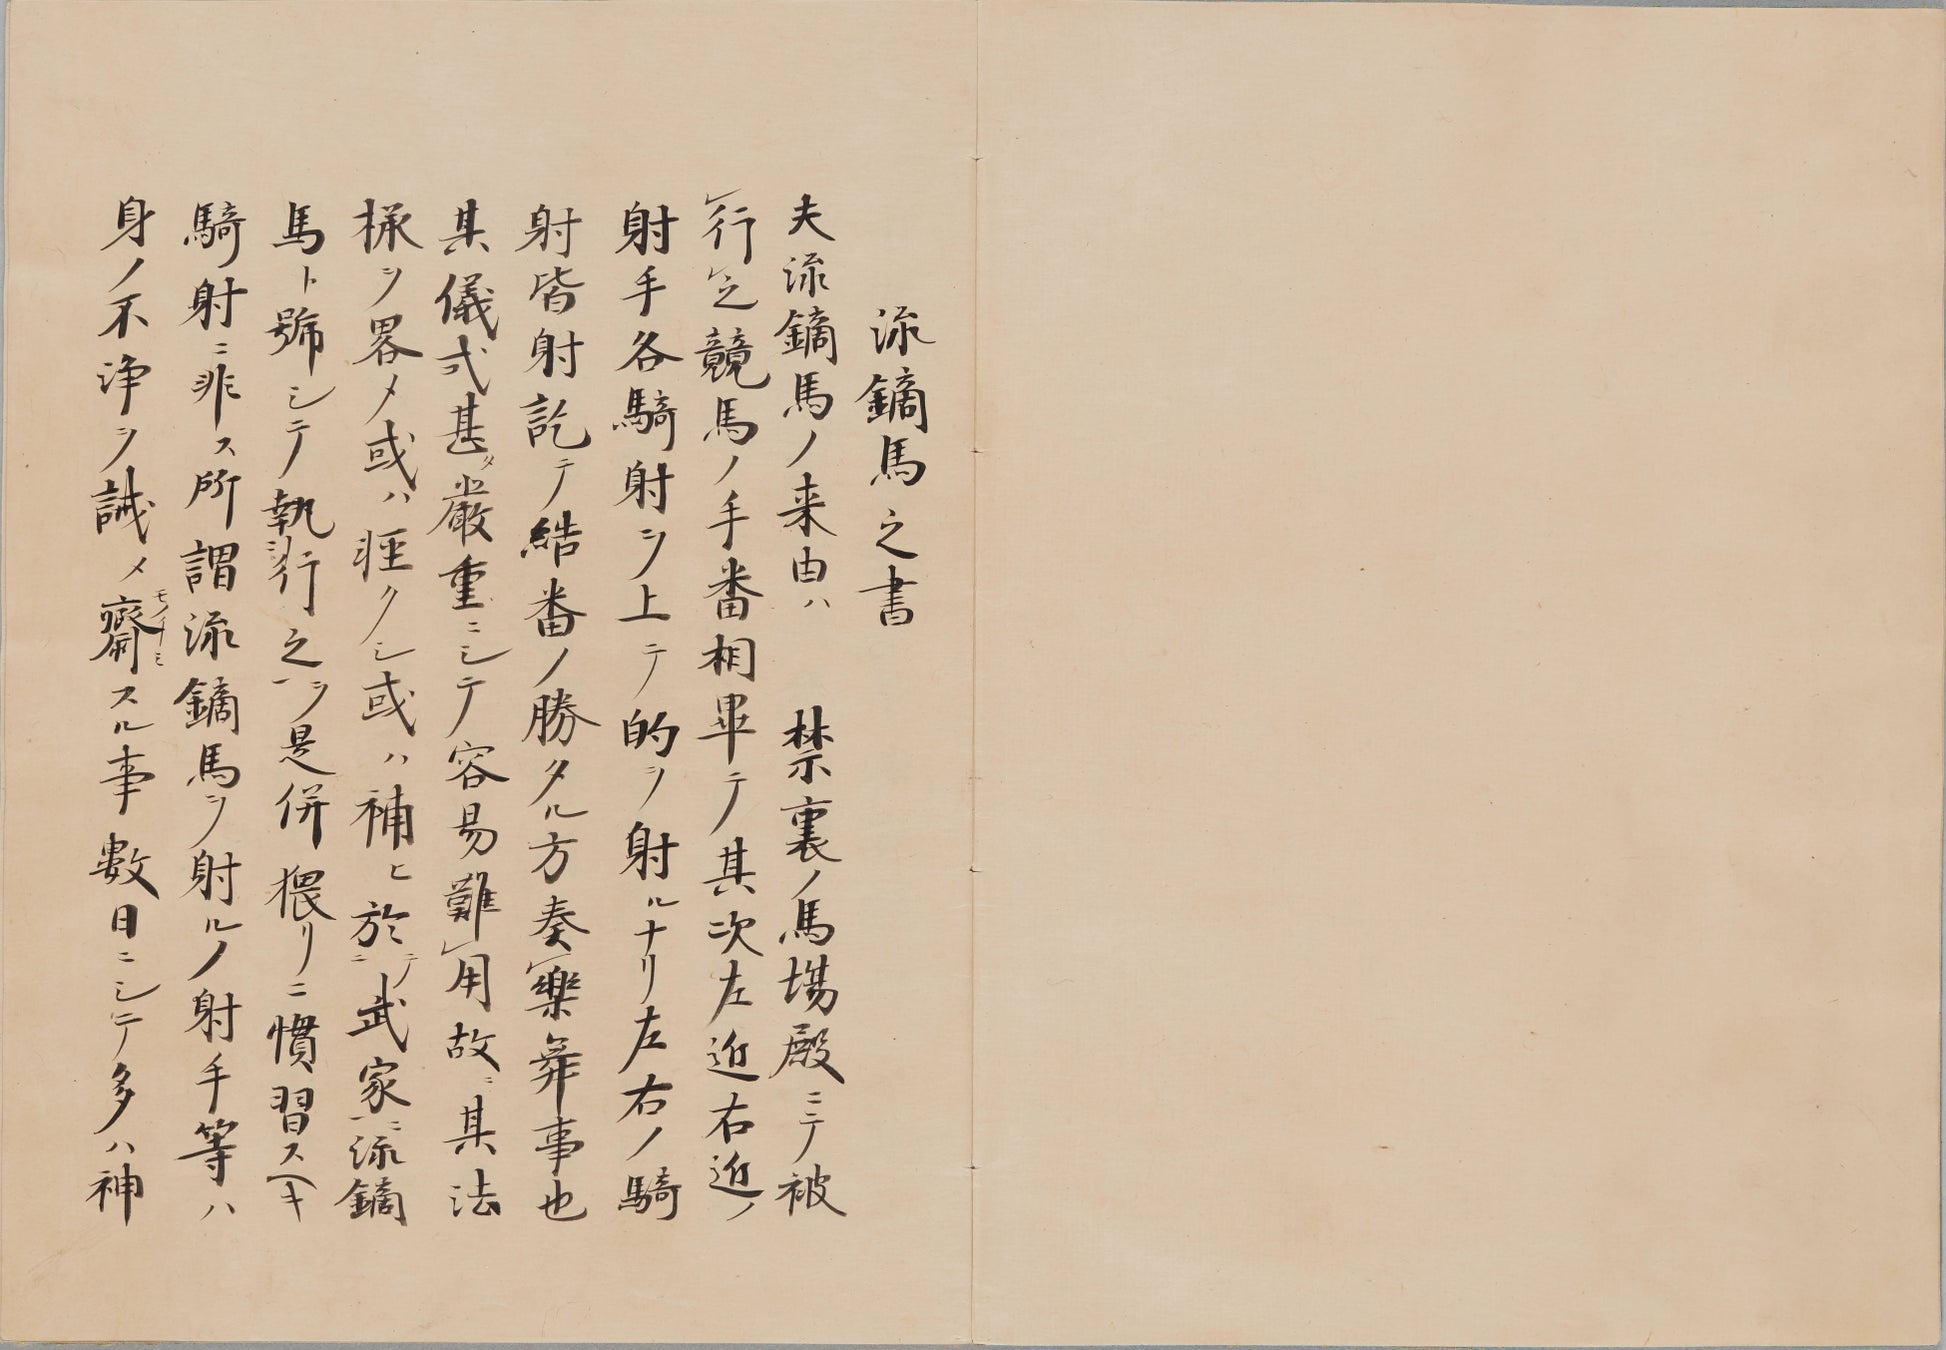 流鏑馬之書
夫流鏑馬ノ来由ハ　禁裏ノ馬場殿ニテ被
行之競馬ノ手番相畢テ其次左近右近ノ
射手各騎射ヲ上テ的ヲ射ルナリ左右ノ騎
射皆射訖テ結番ノ勝タル方奏樂舞事也
其儀式甚タ嚴重ニシテ容易難用故ニ其法
様ヲ畧メ或ハ軽クシ或ハ補ヒ於テ武家ニ流鏑
馬ト號シテ執行之ヲ是併猥リニ慣習スヘキ
騎射ニ非ス所謂流鏑馬ヲ射ルノ射手等ハ
身ノ不浄ヲ誡メ齋スル事數日ニシテ多ハ神